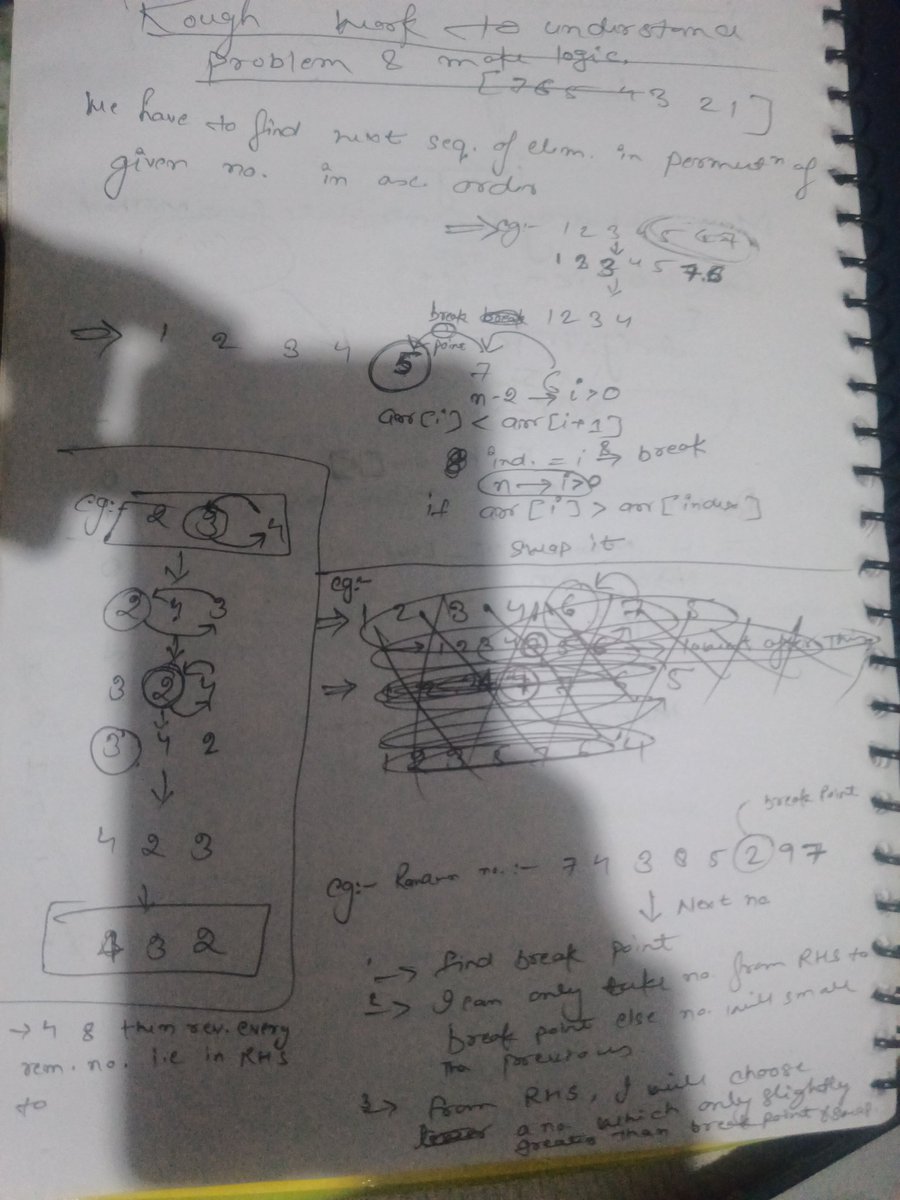 Rough work to understand
problem & make logic.
[7 6 5 4 3 2 1]
We have to find next seq. of elem. in permutn of
given no. in asc. order
⇒ eg:- 1 2 3 4 5 6 7
↓
1 2 3 4 5 7 6
↓
break 1 2 3 4
point
⇒ 1 2 3 4 5 7 6
n-2 → i>0
arr[i] < arr[i+1]
ind. = i & → break
n → i>0
if arr[i] > arr[index]
swap it
eg:- 2 3 4
↓
2 4 3
↓
3 2 4
↓
3 4 2
↓
4 2 3
↓
4 3 2
→ 4 & then rev. every
rem. no. i.e in RHS
to
eg:-
⇒ 1 2 3 4 6 7 5
⇒
1 2 3 5 7 6 4
break point
eg:- no. :- 7 4 3 8 5 2 9 7
↓ Next no
1 → find break point
2 → I can only take no. from RHS to
break point else no. will small
previous
3 → from RHS, I will choose
a no. which only slightly
greater than break point & swap.